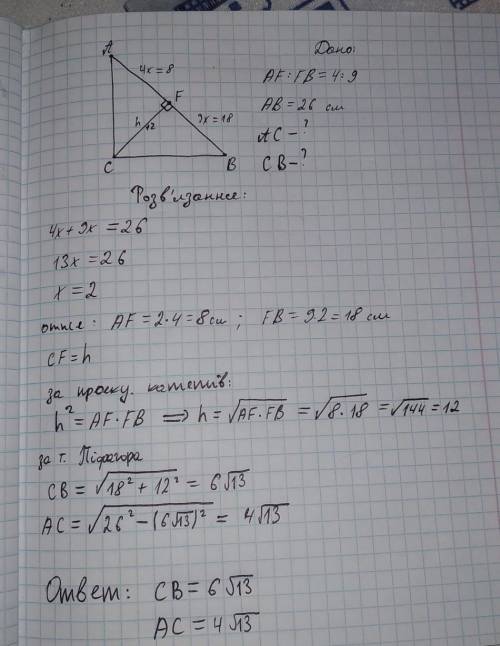 A
4x=8
F
h
12
9x=18
C
B
Дано:
AF:FB=4:9
AB=26 см
AC-?
CB-?
Розв'язання:
4x+9x=26
13x=26
x=2
отже: AF=2·4=8см; FB=9·2=18 см
CF=h
за проєку. катетів:
h²=AF·FB ⟹ h=√AF·FB =√8·18 =√144=12
за т. Піфагора
CB=√18²+12² = 6√13
AC=√26²-(6√13)² = 4√13
Ответ: CB=6√13
AC=4√13